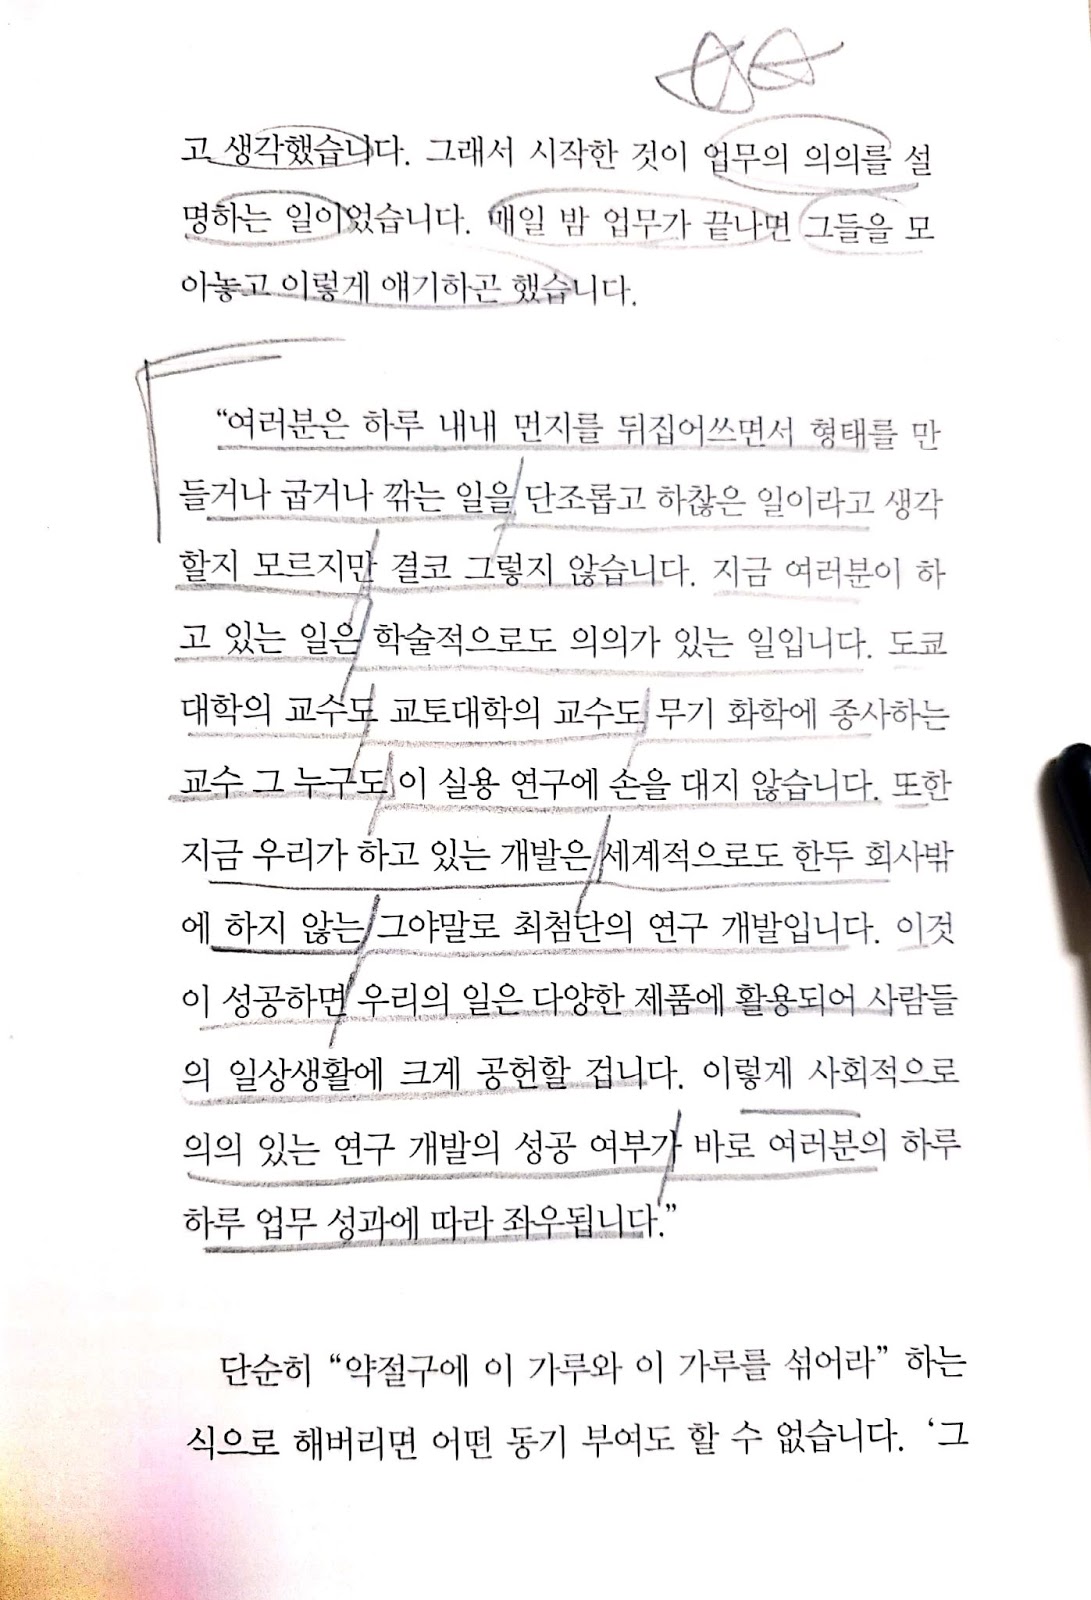 고 생각했습니다. 그래서 시작한 것이 업무의 의의를 설
명하는 일이었습니다. 매일 밤 업무가 끝나면 그들을 모
아놓고 이렇게 얘기하곤 했습니다.
“여러분은 하루 내내 먼지를 뒤집어쓰면서 형태를 만
들거나 굽거나 깎는 일을 단조롭고 하찮은 일이라고 생각
할지 모르지만 결코 그렇지 않습니다. 지금 여러분이 하
고 있는 일은 학술적으로도 의의가 있는 일입니다. 도쿄
대학의 교수도 교토대학의 교수도 무기 화학에 종사하는
교수 그 누구도 이 실용 연구에 손을 대지 않습니다. 또한
지금 우리가 하고 있는 개발은 세계적으로도 한두 회사밖
에 하지 않는 그야말로 최첨단의 연구 개발입니다. 이것
이 성공하면 우리의 일은 다양한 제품에 활용되어 사람들
의 일상생활에 크게 공헌할 겁니다. 이렇게 사회적으로
의의 있는 연구 개발의 성공 여부가 바로 여러분의 하루
하루 업무 성과에 따라 좌우됩니다.”
단순히 “약절구에 이 가루와 이 가루를 섞어라” 하는
식으로 해버리면 어떤 동기 부여도 할 수 없습니다. ‘그